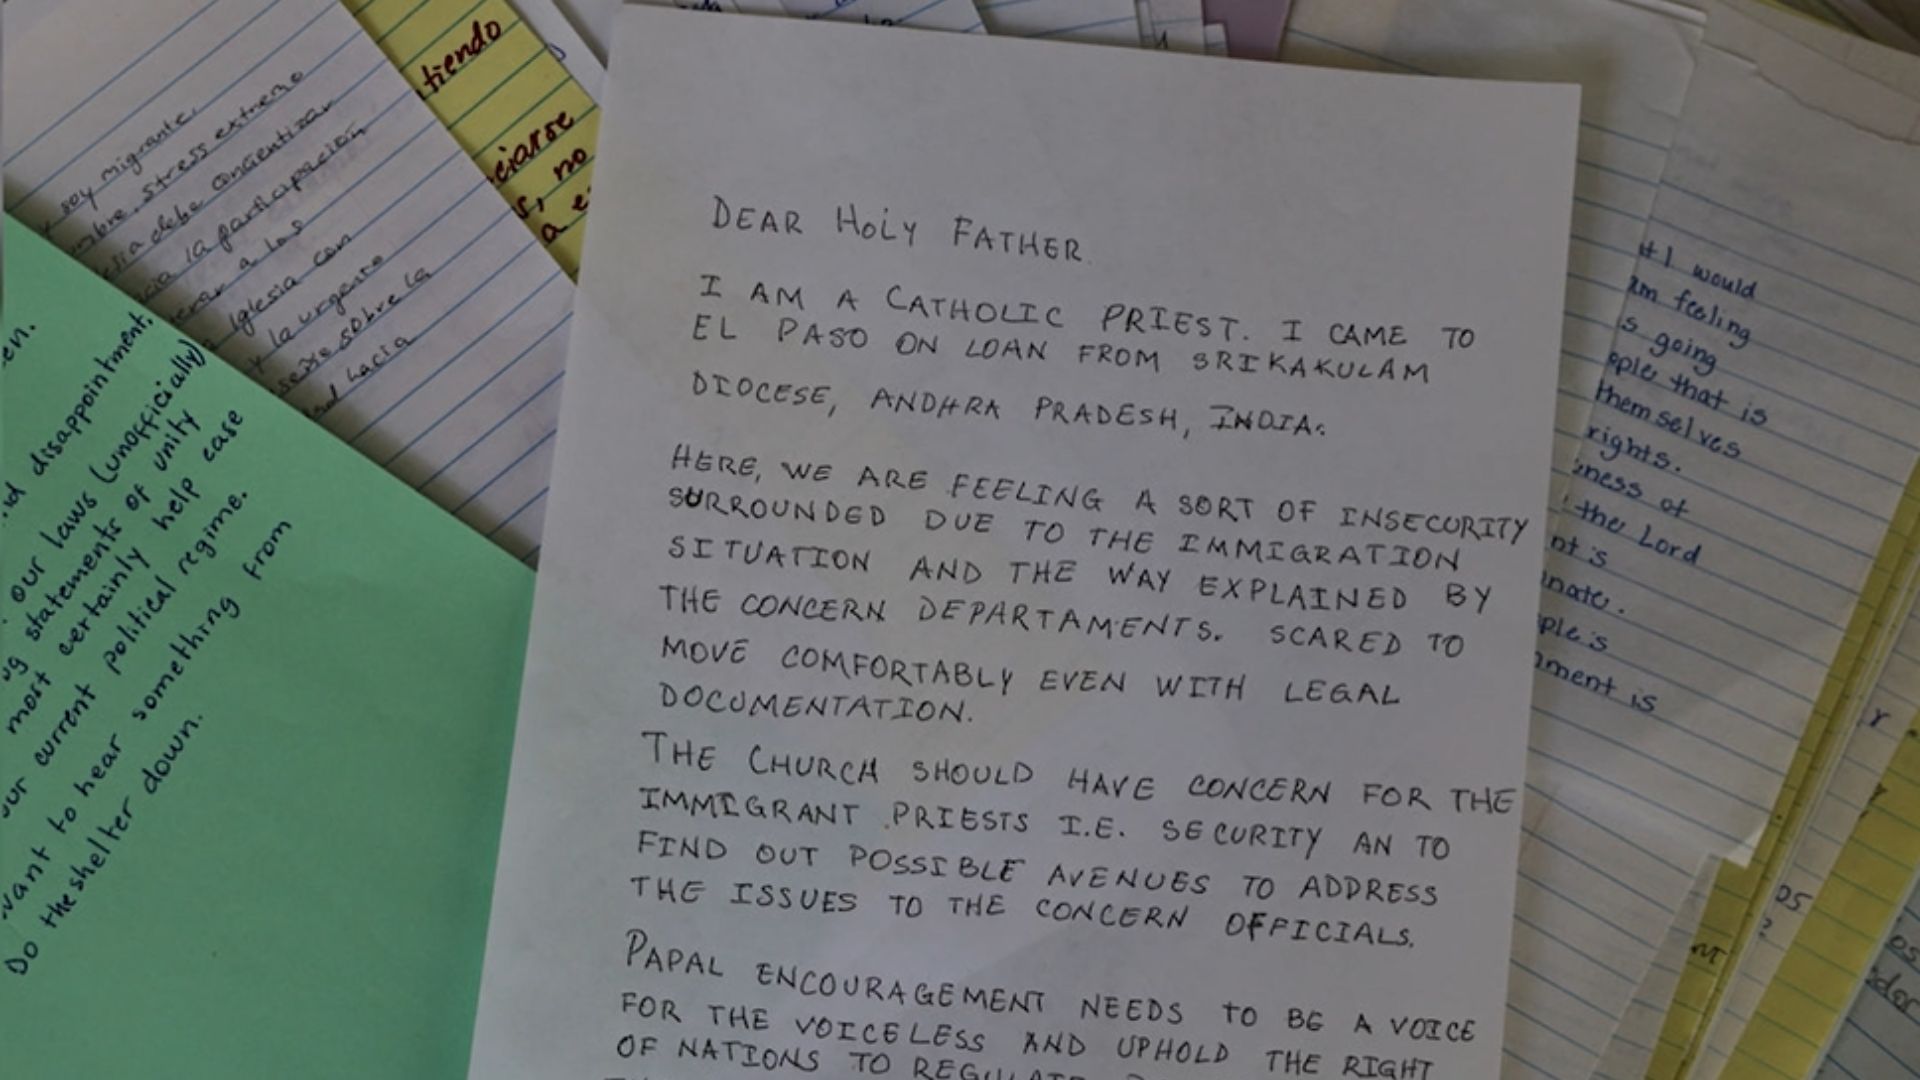 DEAR HOLY FATHER.
I AM A CATHOLIC PRIEST. I CAME TO
EL PASO ON LOAN FROM SRIKAKULAM
DIOCESE, ANDHRA PRADESH, INDIA.
HERE, WE ARE FEELING A SORT OF INSECURITY
SURROUNDED DUE TO THE IMMIGRATION
SITUATION AND THE WAY EXPLAINED BY
THE CONCERN DEPARTAMENTS. SCARED TO
MOVE COMFORTABLY EVEN WITH LEGAL
DOCUMENTATION.
THE CHURCH SHOULD HAVE CONCERN FOR THE
IMMIGRANT PRIESTS I.E. SECURITY AN TO
FIND OUT POSSIBLE AVENUES TO ADDRESS
THE ISSUES TO THE CONCERN OFFICIALS.
PAPAL ENCOURAGEMENT NEEDS TO BE A VOICE
FOR THE VOICELESS AND UPHOLD THE RIGHT
OF NATIONS TO REGULATE
soy migrante.
stress extremo
debe concientizar
la participación
a los
Iglesia con
y la urgente
sobre la
hacia
tiendo
ciarse
s, no
a e
en.
disappointment.
our laws (unofficially)
statements of unity
most certainly help ease
our current political regime.
want to hear something from
Do the shelter down.
I would
am feeling
s going
ople that is
themselves
rights.
ness of
the Lord
nt is
nate.
ple is
ment is
os
?